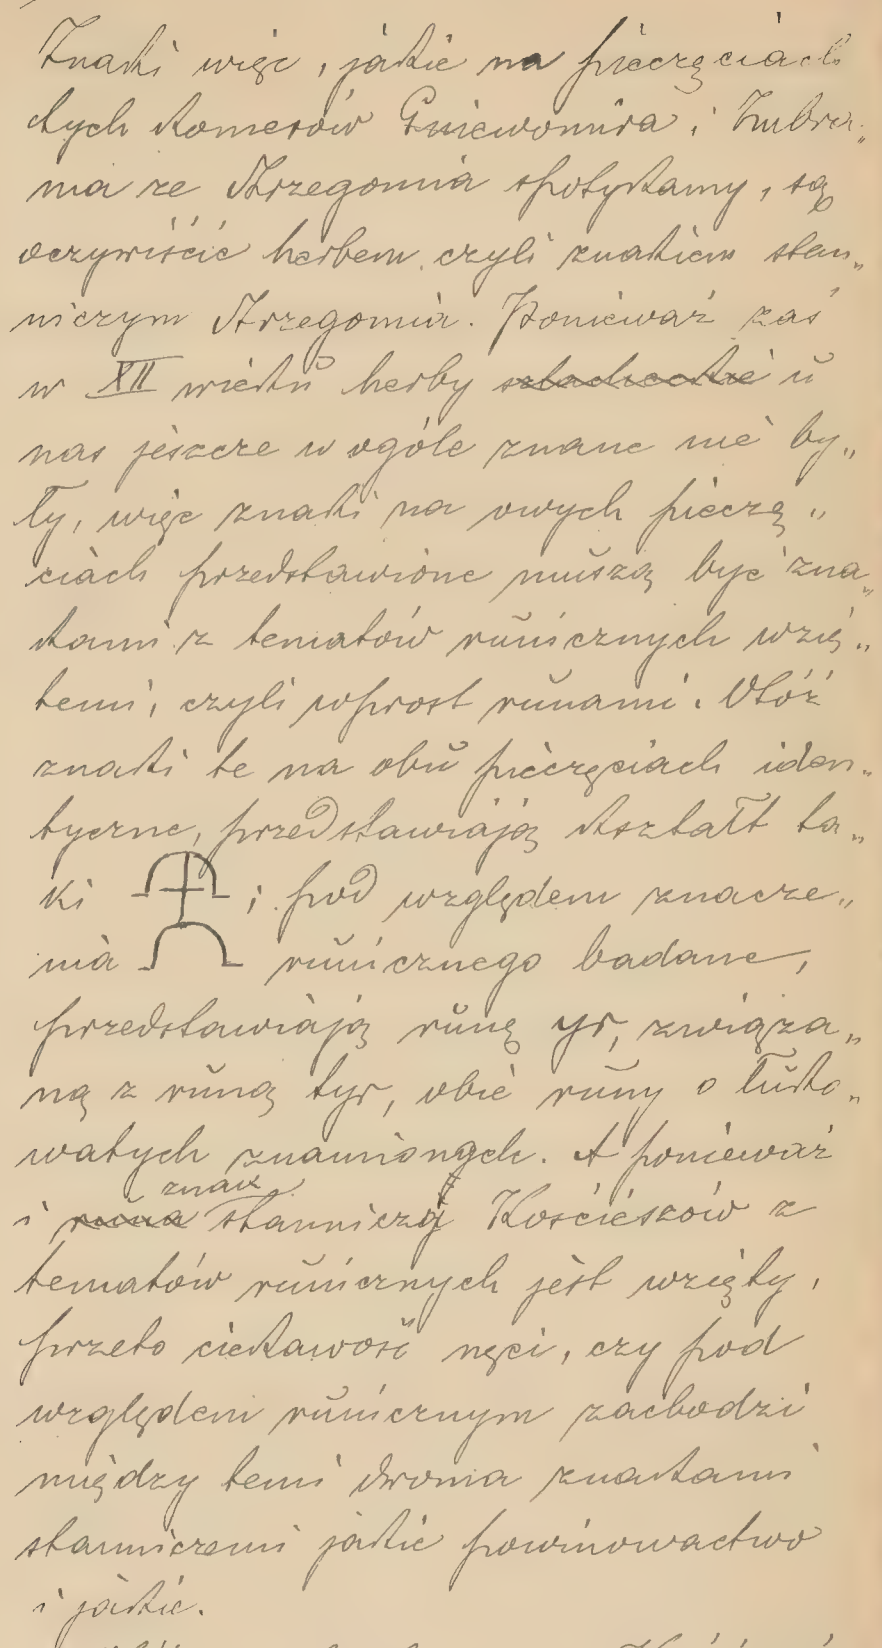 Znaki więc, jakie na pieczęciach
tych komesów Gniewomira i Imbra„
ma ze Strzegomia spotykamy, są
oczywiście herbem czyli znakiem stan„
niczym Strzegomia. Ponieważ zaś
w XII wieku herby szlacheckie u
nas jeszcze w ogóle znane nie by„
ły, więc znaki na owych pieczę„
ciach przedstawione muszą być zna„
kami z tematów runicznych wzię„
temi, czyli wprost runami. Otóż
znaki te na obu pieczęciach iden„
tyczne, przedstawiają kształt ta„
ki ; pod względem znacze„
nia runicznego badane,
przedstawiają runę yr, związa„
ną z runą tyr, obie runy o łuko„
watych znamionach. A ponieważ
i runa znak stanniczy Kościeszów z
tematów runicznych jest wzięty,
przeto ciekawość nęci, czy pod
względem runicznym zachodzi
między temi dwoma znakami
stanniczemi jakie powinowactwo
i jakie.